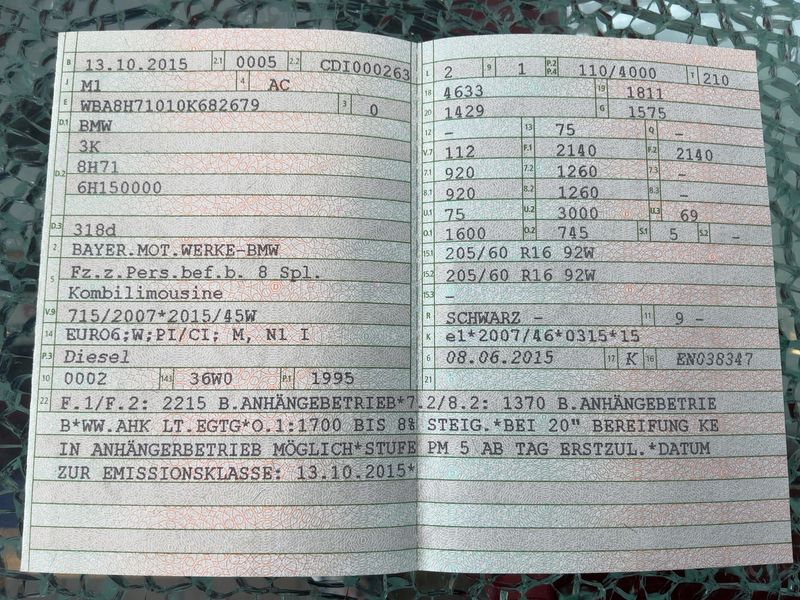 B 13.10.2015 2.1 0005 2.2 CDI000263
J M1 4 AC
E WBA8H71010K682679 3 0
D.1 BMW
3K
D.2 8H71
6H150000
D.3 318d
2 BAYER.MOT.WERKE-BMW
5 Fz.z.Pers.bef.b. 8 Spl.
Kombilimousine
V.9 715/2007*2015/45W
14 EURO6;W;PI/CI; M, N1 I
P.3 Diesel
10 0002 14.1 36W0 P.1 1995
L 2 9 1 P.2 P.4 110/4000 T 210
18 4633 19 1811
20 1429 G 1575
12 - 13 75 Q -
V.7 112 F.1 2140 F.2 2140
7.1 920 7.2 1260 7.3 -
8.1 920 8.2 1260 8.3 -
U.1 75 U.2 3000 U.3 69
O.1 1600 O.2 745 S.1 5 S.2 -
15.1 205/60 R16 92W
15.2 205/60 R16 92W
15.3 -
R SCHWARZ - 11 9 -
K e1*2007/46*0315*15
6 08.06.2015 17 K 16 EN038347
21
22 F.1/F.2: 2215 B.ANHÄNGEBETRIEB*7.2/8.2: 1370 B.ANHÄNGEBETRIE
B*WW.AHK LT.EGTG*O.1:1700 BIS 8% STEIG.*BEI 20" BEREIFUNG KE
IN ANHÄNGERBETRIEB MÖGLICH*STUFE PM 5 AB TAG ERSTZUL.*DATUM
ZUR EMISSIONSKLASSE: 13.10.2015*